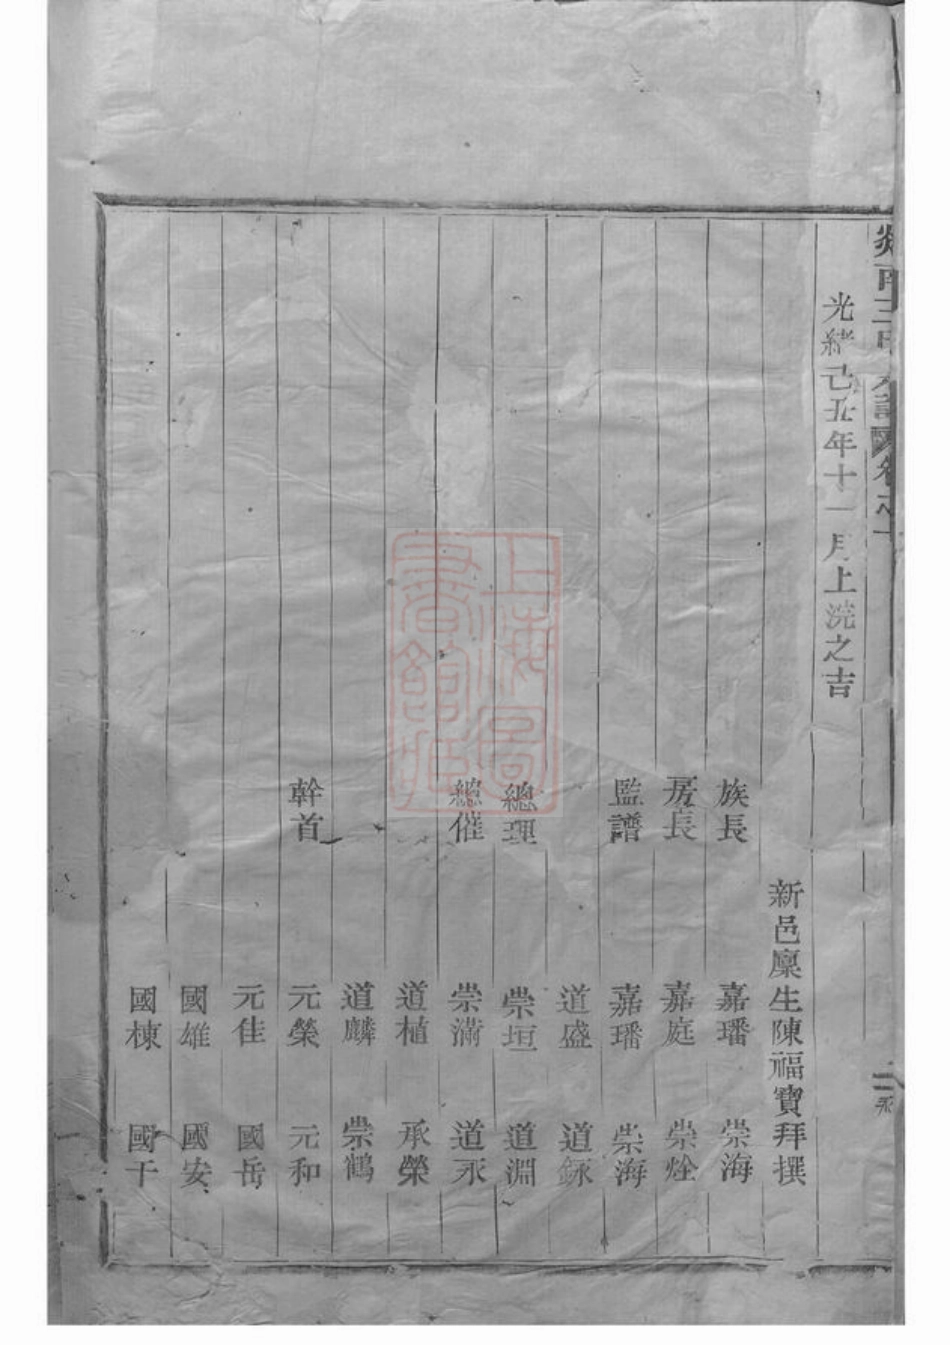 光緒己丑年十一月上浣之吉
新邑廩生陳福寶拜撰
族長 嘉璠 崇海
房長 嘉庭 崇烇
監譜 嘉璠 崇海
道盛 道銢
總理 崇垣 道淵
總催 崇滿 道永
道植 承榮
道麟 崇鶴
幹首 元榮 元和
元佳 國岳
國雄 國安
國棟 國干
上海圖書館藏